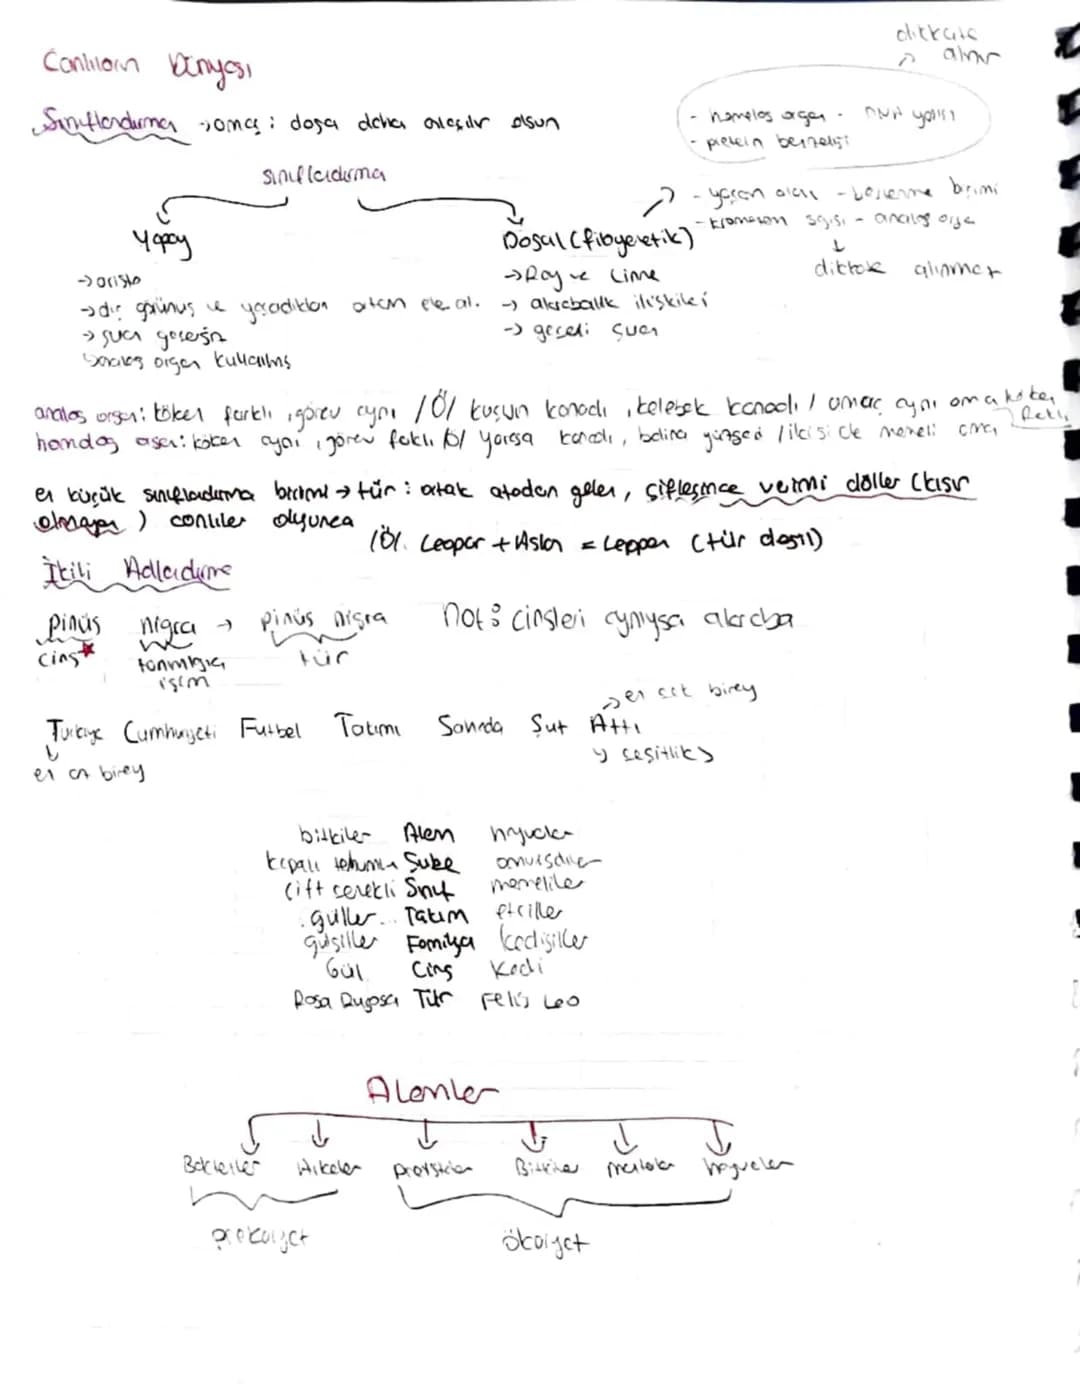 dikkate
alınır
Canlıların Dünyası
Sınıflandırma → amaç : doğa daha anlaşılır olsun
- homolog organ - DNA yapısı
- protein benzerliği
sınıflandırma
- yaşam alanı - beslenme biçimi
- kromozom sayısı - analog organ
↓
dikkate alınmaz
Yapay
Doğal (fibyeretik)
→ aristo
→ Ray ve Linne
→ dış görünüş ve yaşadıkları ortam ele al.
→ akrabalık ilişkileri
→ geçerli
→ analog organ kullanılmış
analog organ: köken farklı, görev aynı /Ö/ kuşun kanadı, kelebek kanadı / amaç aynı ama köken farklı
homolog organ: köken aynı, görev farklı /Ö/ yarasa kanadı, balina yüzgeci / ikisi de memeli ama
en küçük sınıflandırma birimi → tür : ortak atadan gelen, çiftleşince verimli döller (kısır
olmayan) canlılar oluyunca
/Ö/. Leopar + Aslan = Leppon (tür değil)
İkili Adlandırma
pinüs nigra → pinüs nigra not: Cinsleri aynıysa akraba
cins★ tanımlayıcı tür
isim
→ en çok birey
Türkiye Cumhuriyeti Futbol Takımı Sahada Şut Attı
↓ çeşitlilik
en az birey
bitkiler Alem hayvanlar
kapalı tohumlu Şube omurgalılar
çift çenekli Sınıf memeliler
güller Takım etçiller
gülgiller Familya kedigiller
Gül Cins Kedi
Rosa Rugosa Tür Felis Leo
Alemler
Bakteriler Arkeler Protistalar Bitkiler mantarlar hayvanlar
prokaryot ökaryot